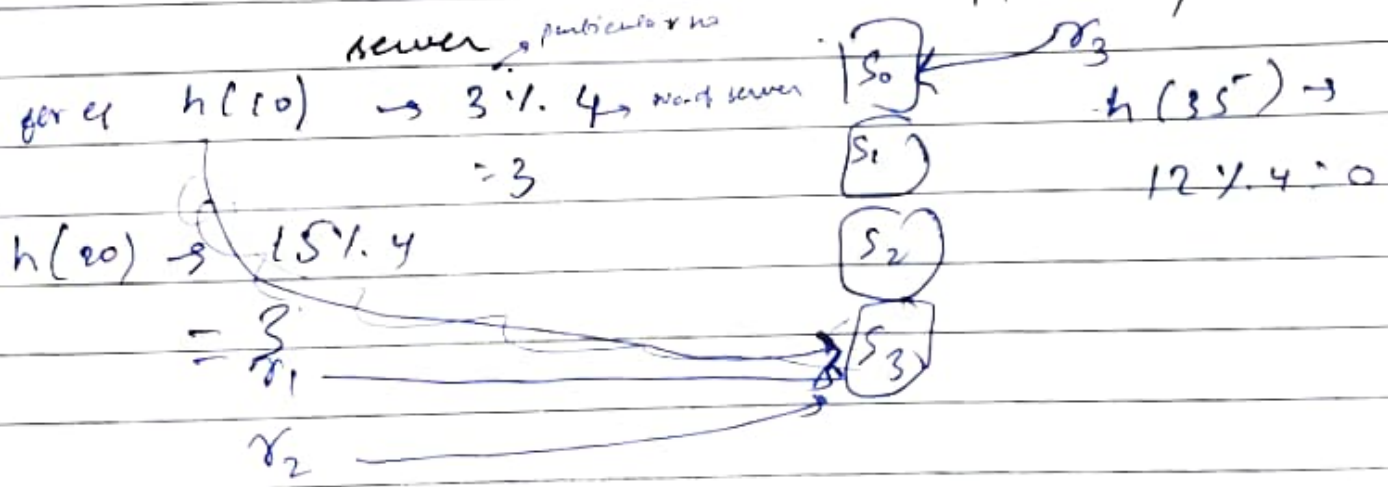 server → particular no
for eg h(10) → 3 % 4 → no. of server
= 3
h(20) → 15 % . 4
= 3
r1
r2
S0
S1
S2
S3
r3
h(35) →
12 % . 4 = 0